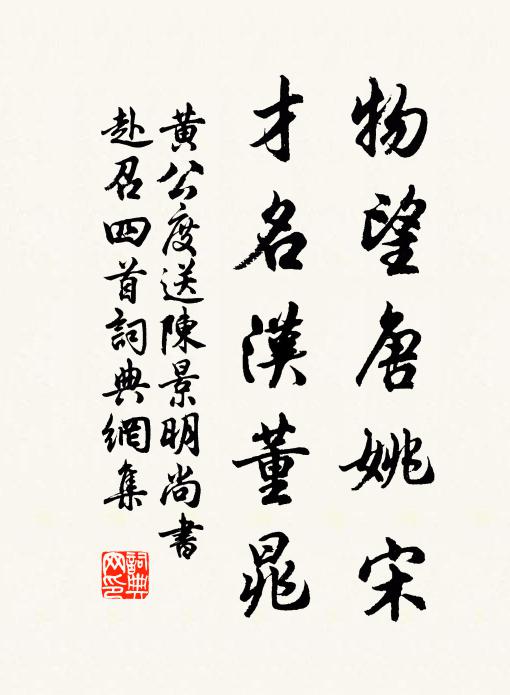 物望唐姚宋
才名漢董晁
黄公度送陳景明尚書
赴召四首詞典網集
詞典
网印